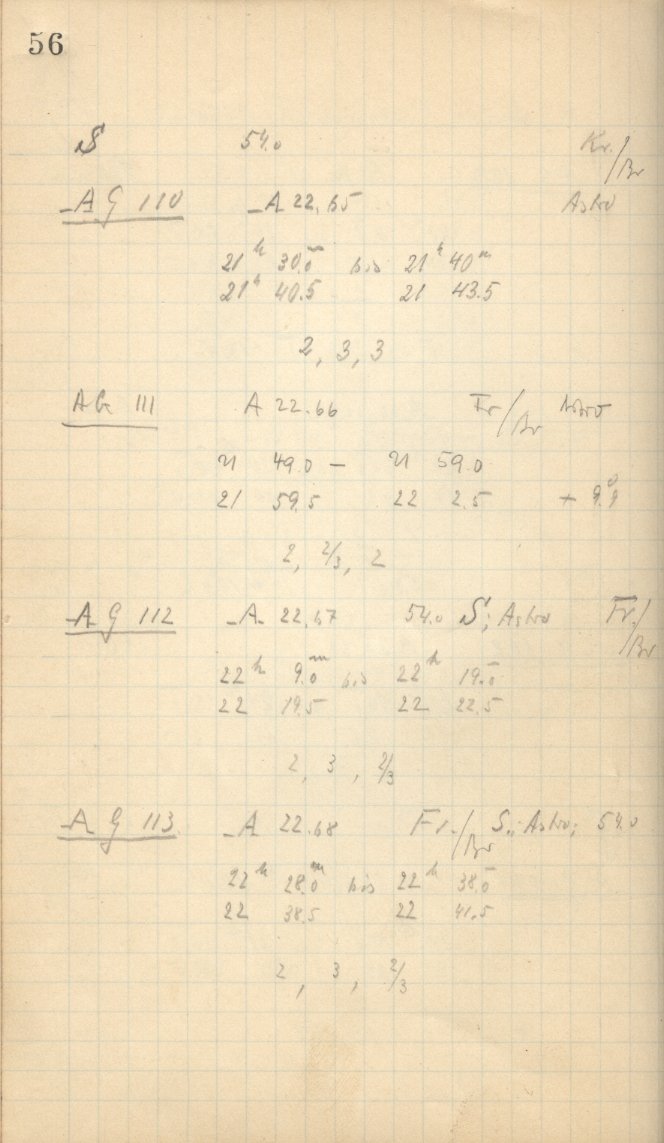 56
S 54.0 Kr./Br
AG 110 A 22.65 Astro
21h 30.0m bis 21h 40m
21h 40.5 21 43.5
2, 3, 3
AG 111 A 22.66 Fr/Br Astro
21 49.0 – 21 59.0
21 59.5 22 2.5 + 9.9
2, 2/3, 2
AG 112 A 22.67 54.0 S; Astro Fr./Br
22h 9.0m bis 22h 19.0
22 19.5 22 22.5
2, 3, 2/3
AG 113 A 22.68 Fr./Br S.; Astro; 54.0
22h 28.0m bis 22h 38.0
22 38.5 22 41.5
2, 3, 2/3